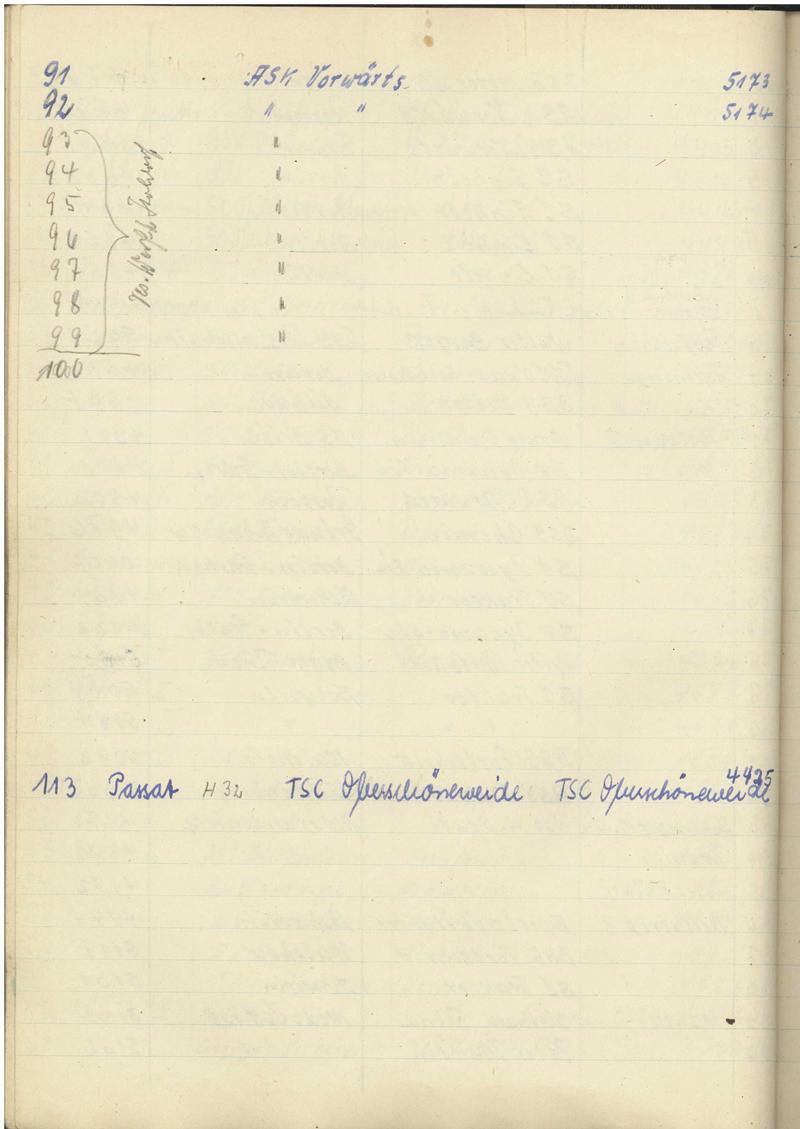 91 ASK Vorwärts. 5173
92 " " 5174
93 "
94 "
95 "
96 "
97 "
98 "
99 "
100
113 Passat H 32 TSC Oberschöneweide TSC Oberschöneweide 4435